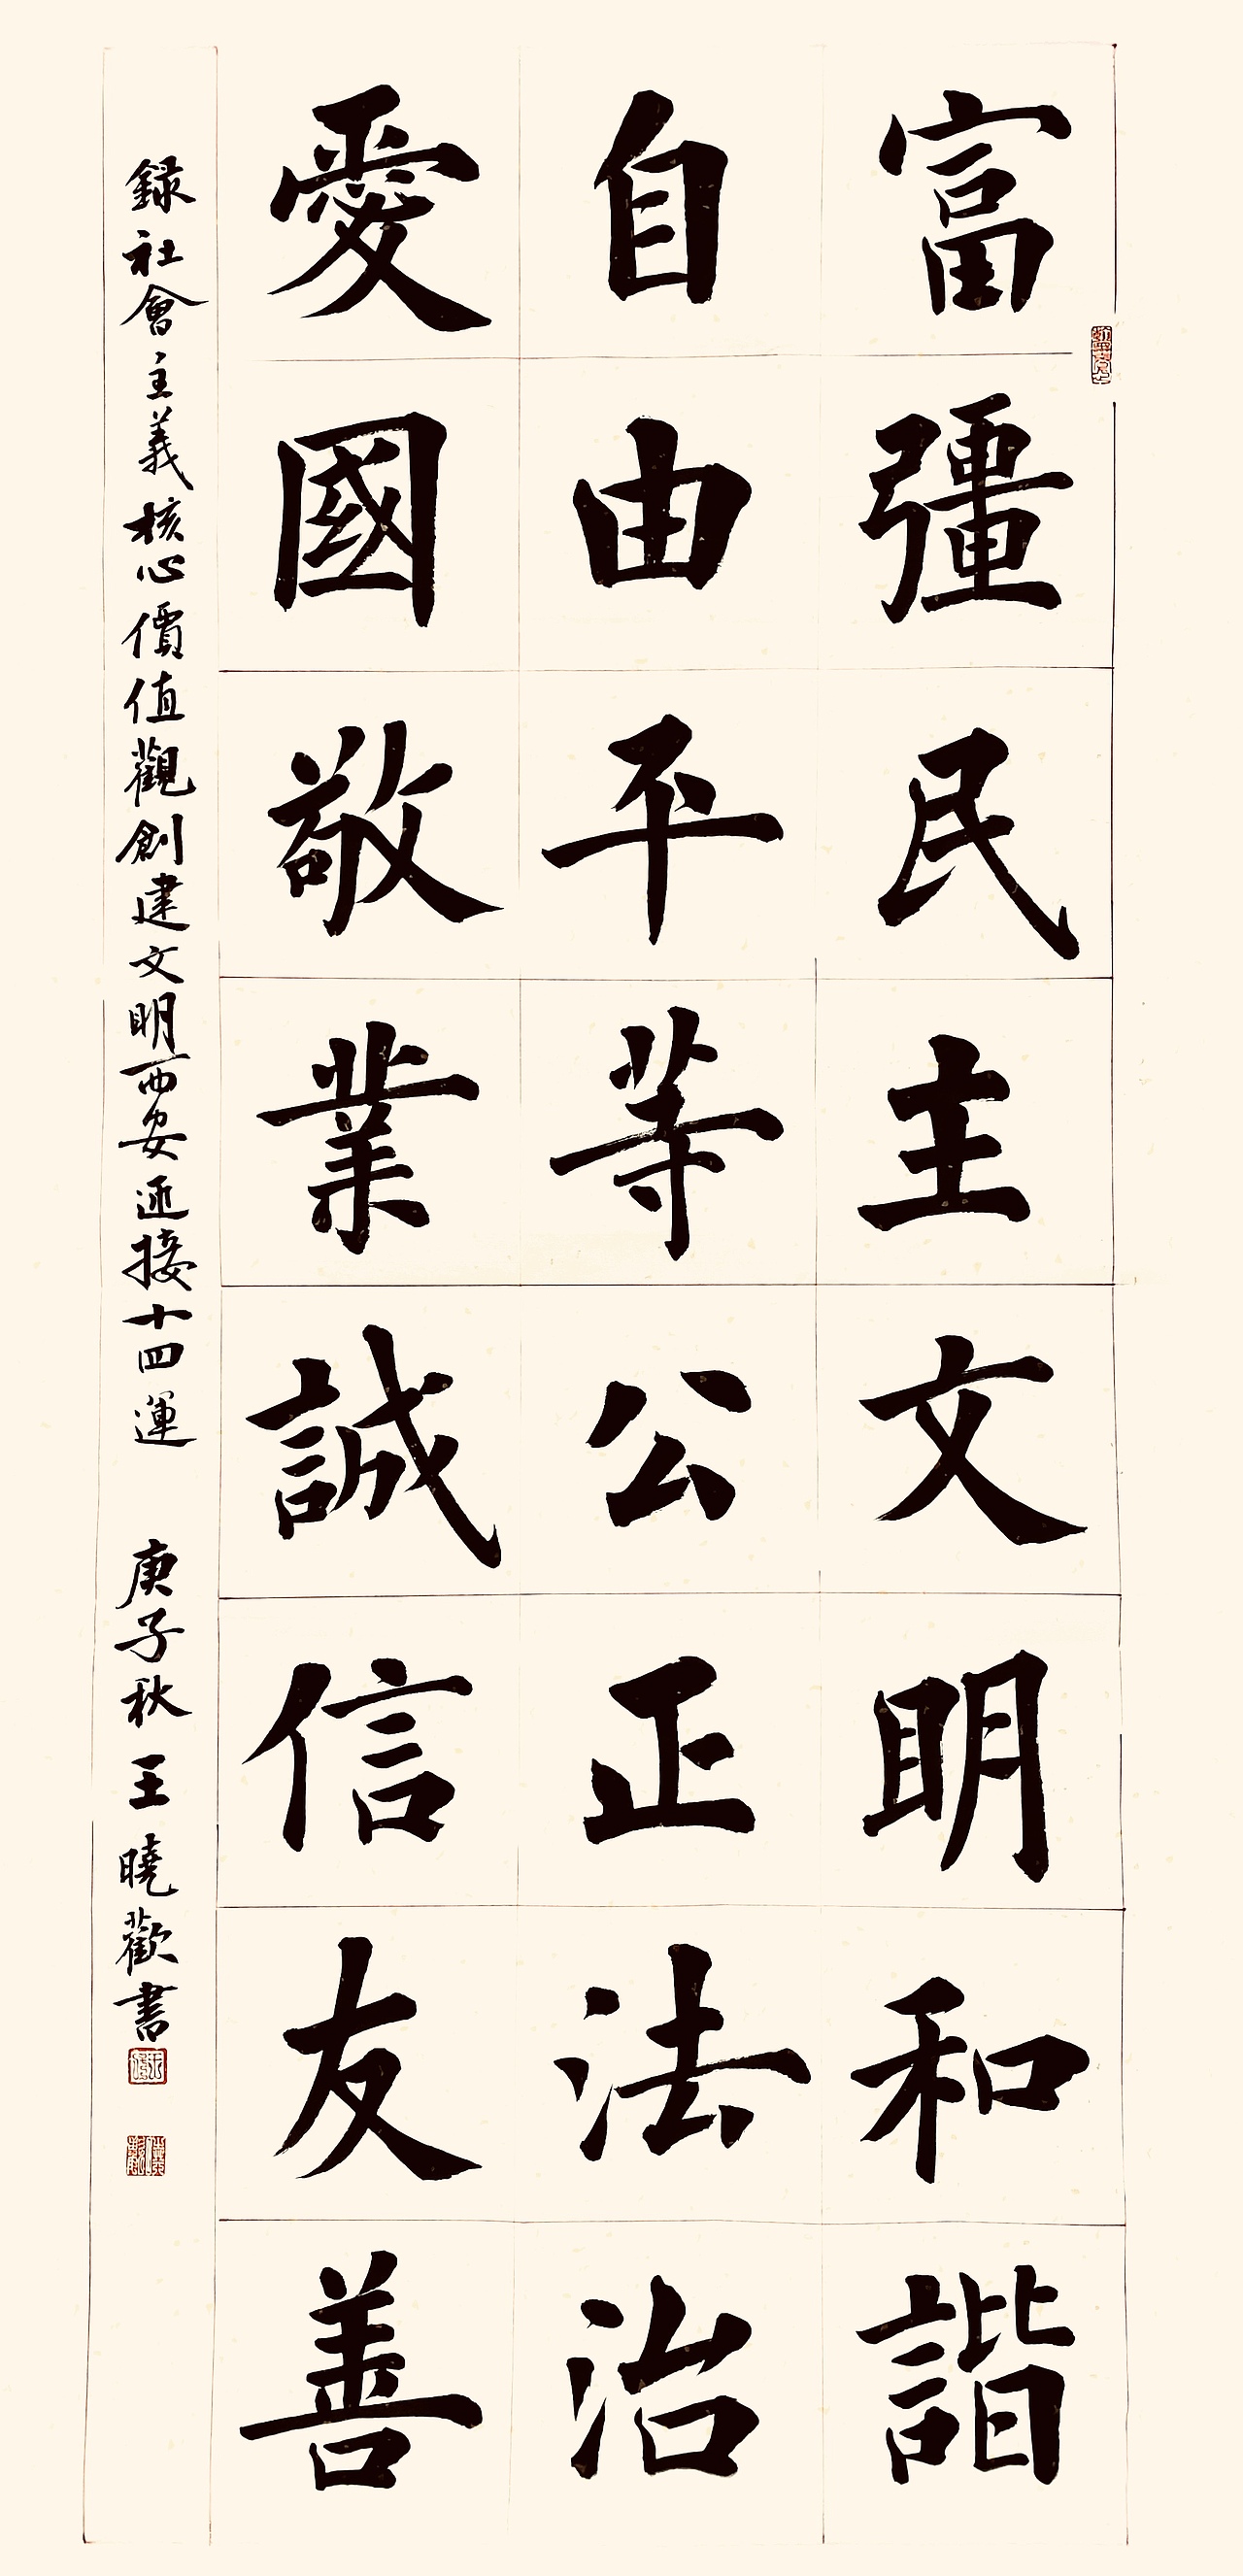 富彊民主文明和諧
自由平等公正法治
愛國敬業誠信友善
録社會主義核心價值觀創建文明西安迎接十四運
庚子秋王曉歡書